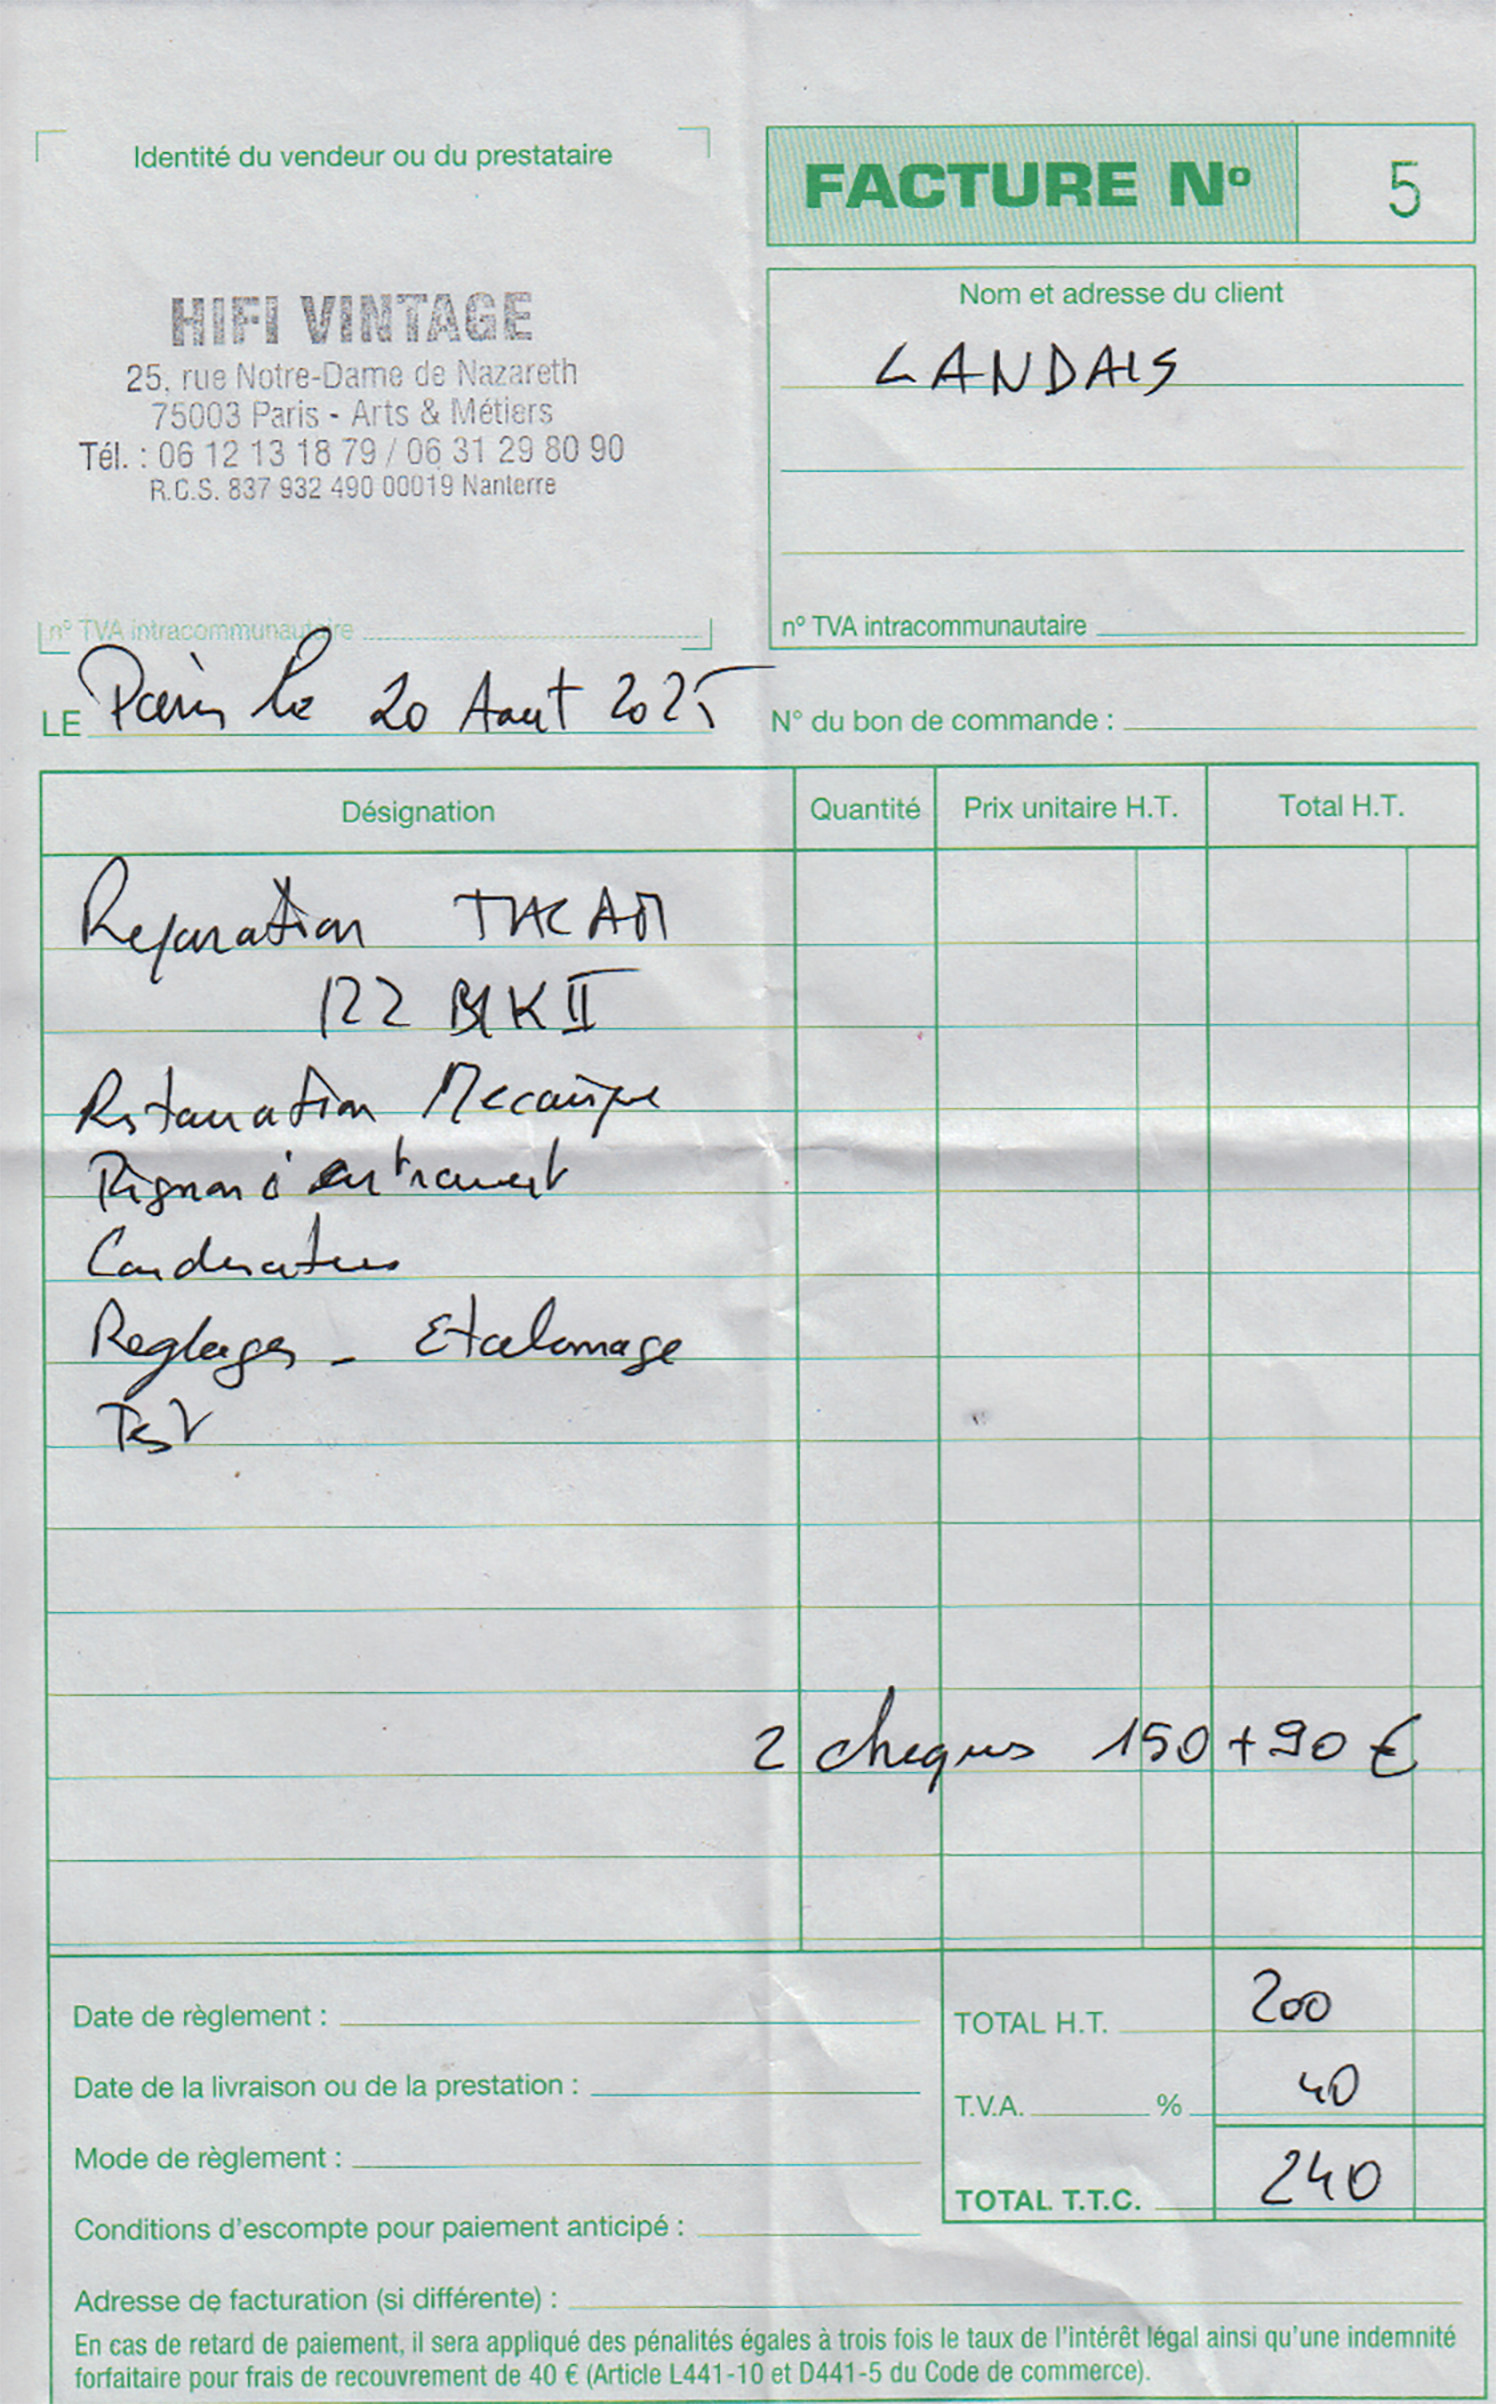 Identité du vendeur ou du prestataire
FACTURE Nº 5
HIFI VINTAGE
25, rue Notre-Dame de Nazareth
75003 Paris - Arts & Métiers
Tél. : 06 12 13 18 79 / 06 31 29 80 90
R.C.S. 837 932 490 00019 Nanterre
nº TVA intracommunautaire
Nom et adresse du client
LANDAIS
nº TVA intracommunautaire
LE Paris le 20 Aout 2025
N° du bon de commande :
Désignation Quantité Prix unitaire H.T. Total H.T.
Reparation
122 MK II
Restauration Mecanique
Pignon
Condensateurs
Reglages - Etalonnage
Test
2 cheques 150 + 90 €
Date de règlement :
Date de la livraison ou de la prestation :
Mode de règlement :
Conditions d'escompte pour paiement anticipé :
TOTAL H.T. 200
T.V.A. % 40
TOTAL T.T.C. 240
Adresse de facturation (si différente) :
En cas de retard de paiement, il sera appliqué des pénalités égales à trois fois le taux de l'intérêt légal ainsi qu'une indemnité
forfaitaire pour frais de recouvrement de 40 € (Article L441-10 et D441-5 du Code de commerce).